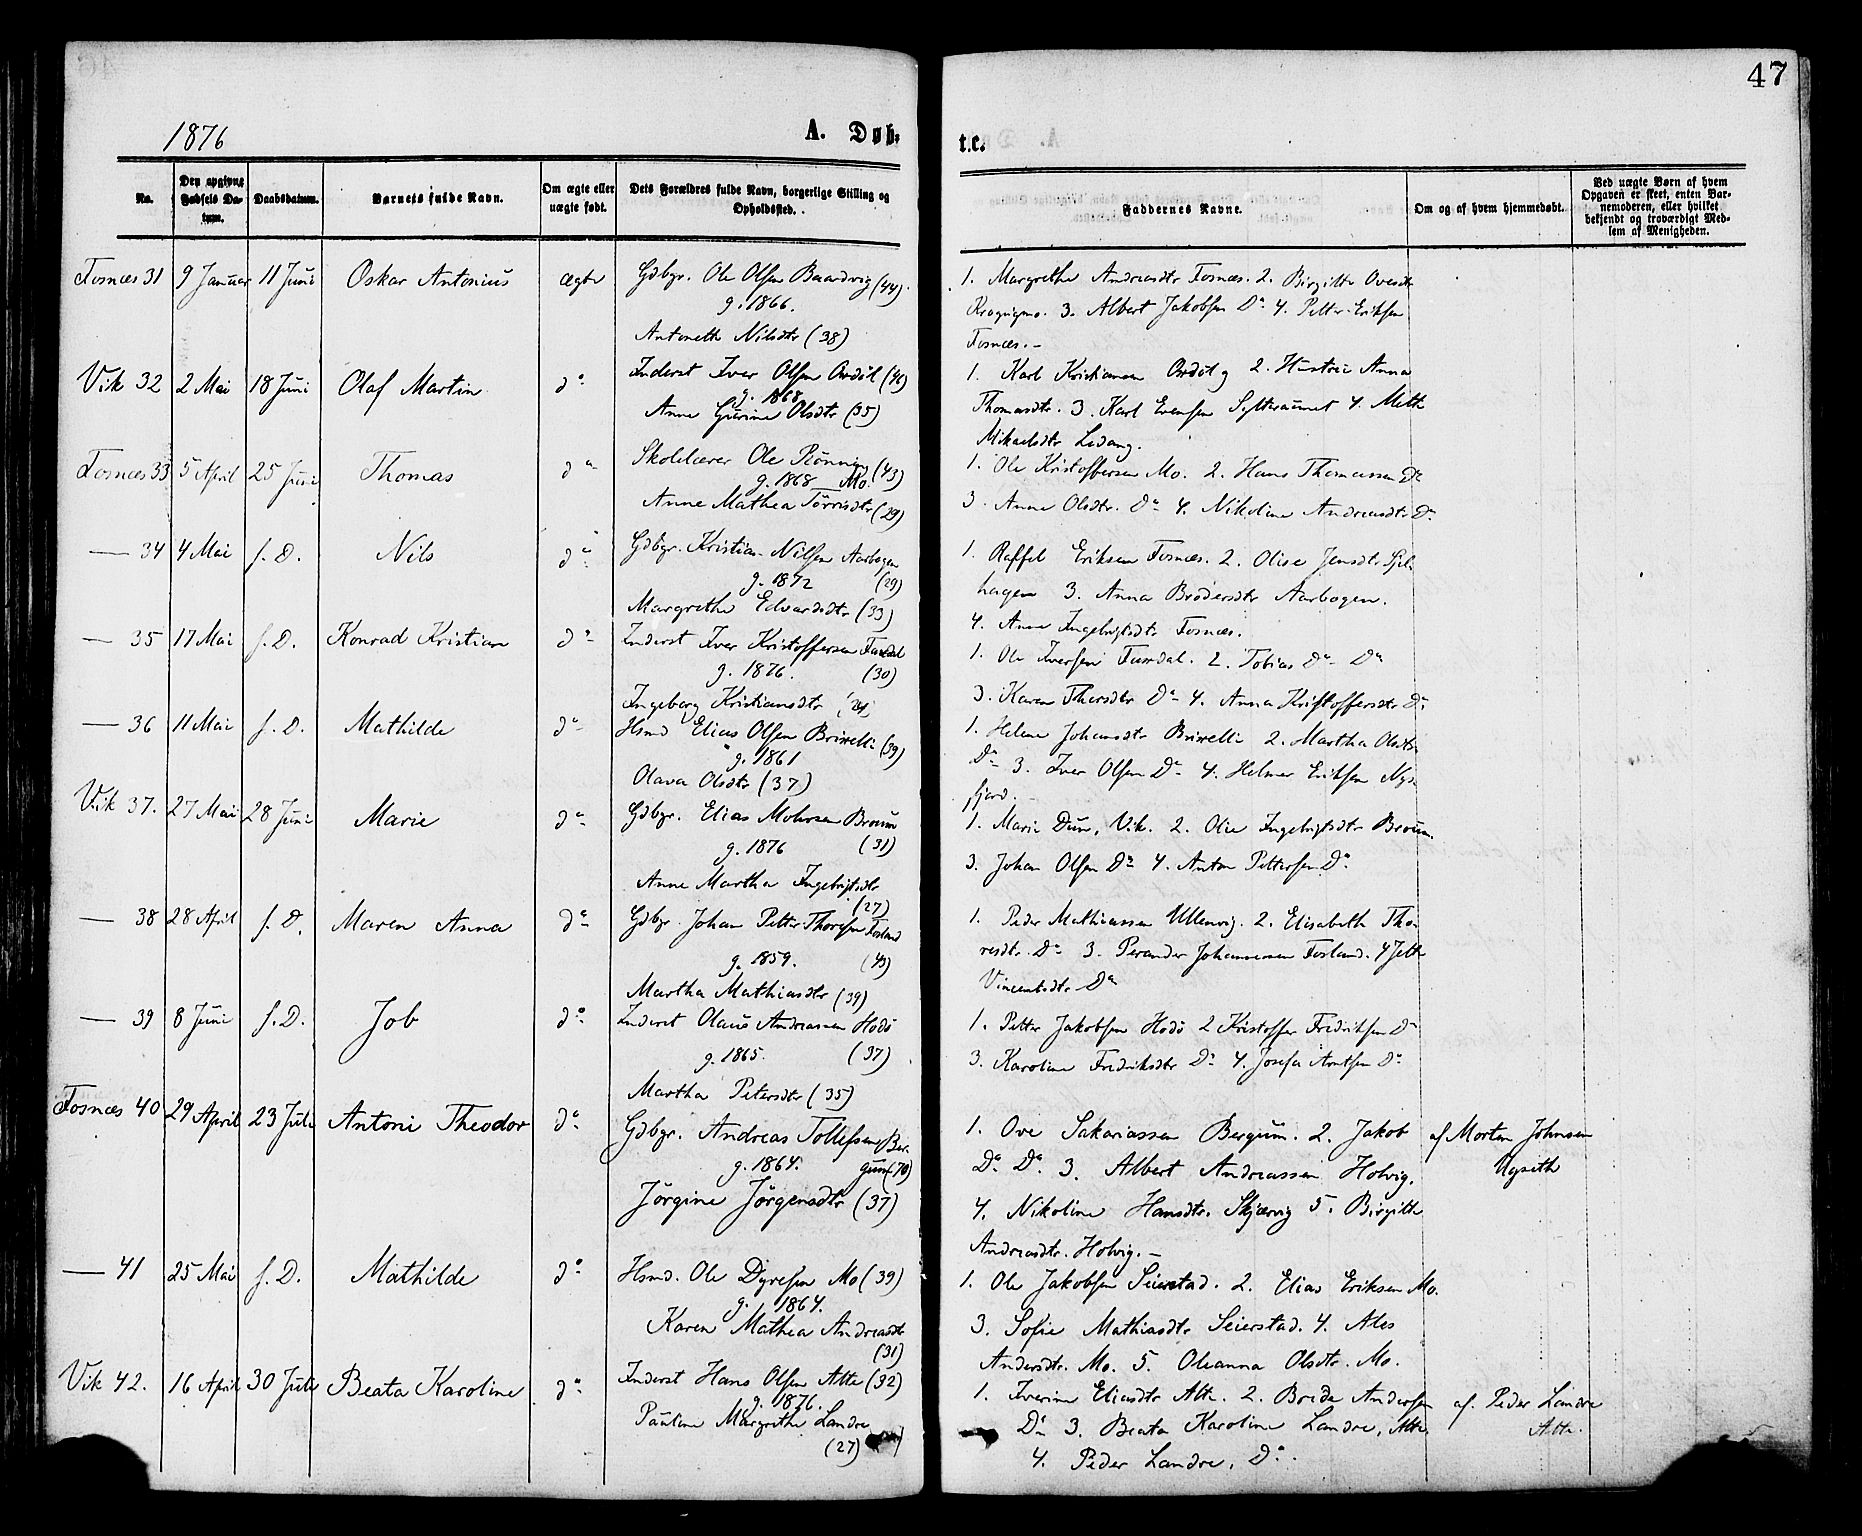 47
1876
A. Døb-
t.e.
No.
Den opgivne Fødsels Datum.
Daabsdatum.
Barnets fulde Navn.
Om ægte eller uægte født.
Dets Forældres fulde Navn, borgerlige Stilling og Opholdssted.
Faddernes Navne.
Om og af hvem hjemmedøbt.
Ved uægte Børn af hvem Opgaven er skeet, enten Barnemoderen, eller hvilket bekjendt og troværdigt Medlem af Menigheden.
Fosnæs 31 9 Januar 11 Juni Oskar Antonius Ægte Gdbgr. Ole Olsen Baardvig (44).
g. 1866.
Antoneth Nilsdtr (38)
1. Margrethe Andreasdtr Fosnæs. 2. Birgitte Ovesdtr
3. Albert Jakobsen Do 4. Petter Eriksen
Fosnæs. –
Vik 32 2 Mai 18 Juni Olaf Martin do Inderst Iver Olsen (46)
g. 1868
Anne Gurine Olsdtr (35)
1. Karl Kristiansen 2. Hustrue Anna
Thomasdtr. 3. Karl Evensen 4. Meth
Mikaelsdtr Ledang.
Fosnæs 33 5 April 25 Juni Thomas do Skolelærer Ole Rønning (43)
g. 1868 Mo.
Anne Mathea Tørrisdtr (29)
1. Ole Kristoffersen Mo. 2. Hans Thomassen Do
3. Anne Olsdtr. Do 4. Nikoline Andreasdtr Do
— 34 4 Mai s. D. Nils do Gdbgr. Kristian Nilsen Aarbogen
g. 1872 (29)
Margrethe Edvardsdtr (33)
1. Raffel Eriksen Fosnæs. 2. Olise Jensdtr Spil-
hagen 3. Anna Brødersdtr Aarbogen.
4. Anne Ingebrigtsdtr Fosnæs.
— 35 17 Mai s. D. Konrad Kristian do Inderst Iver Kristoffersen Faxdal
g. 1876. (30)
Ingeborg Kristiansdtr
1. Ole Iversen 2. Tobias Do Do
3. Karen Do 4. Anna Kristoffersdtr Do
— 36 11 Mai s. D. Mathilde do Hsmd Elias Olsen Brisvelli (39)
g. 1861
Olava Olsdtr (37)
1. Helene Johansdtr Brisvelli 2. Martha Olsdtr
Do 3. Iver Olsen Do 4. Helmer Eriksen Nys-
fjord.
Vik 37. 27 Mai 28 Juni Marie do Gdbgr. Elias Mohrsen Broum
g. 1876 (31)
Anne Martha Ingebrigtsdtr
(27)
1. Marie Dun, Vik. 2. Olie Ingebrigtsdtr Broum.
3. Johan Olsen Do 4. Anton Pettersen Do
— 38 28 April s. D. Maren Anna do Gdbgr. Johan Petter Thoresen Fosland
g. 1859. (43)
Martha Mathiasdtr (39)
1. Peder Mathiassen Ullenvig. 2. Elisabeth Tho-
resdtr. Do 3. Perander Johannesen Fosland. 4 Jette
Vincentsdtr Do
— 39 8 Juni s. D. Job do Inderst Olaus Andreassen Hodø
g. 1865. (37)
Martha Petersdtr (35)
1. Petter Jakobsen Hodø 2 Kristoffer Fredriksen Do
3. Karoline Fredriksdtr Do 4. Josefa Arntsen Do
Fosnæs 40 29 April 23 Juli Antoni Theodor do Gdbgr. Andreas Tollefsen Ber-
g. 1864. gum (70)
Jørgine Jørgensdtr (37)
1. Ove Sakariassen Bergum. 2. Jakob
Do Do 3. Albert Andreassen Holvig.
4. Nikoline Hansdtr. Skjærvig 5. Birgitte
Andreasdtr. Holvig. –
af Morten Johnsen
— 41 25 Mai s. D. Mathilde do Hsmd. Ole Dyresen Mo (39)
g. 1864.
Karen Mathea Andreasdtr
(31)
1. Ole Jakobsen Seierstad. 2. Elias Eriksen Mo.
3. Sofie Mathiasdtr Seierstad. 4. Ales
Andersdtr. Mo. 5. Oleanna Olsdtr. Mo.
Vik 42. 16 April 30 Juli Beata Karoline do Inderst Hans Olsen Alte (32)
g. 1876.
Pauline Margrethe Landre
(27)
1. Iverine Eliasdtr Alte. 2. Brede Andersen
Do 3. Beata Karoline Landre, Alte
4. Peder Landre, Do
af. Peder Landre
Alte.